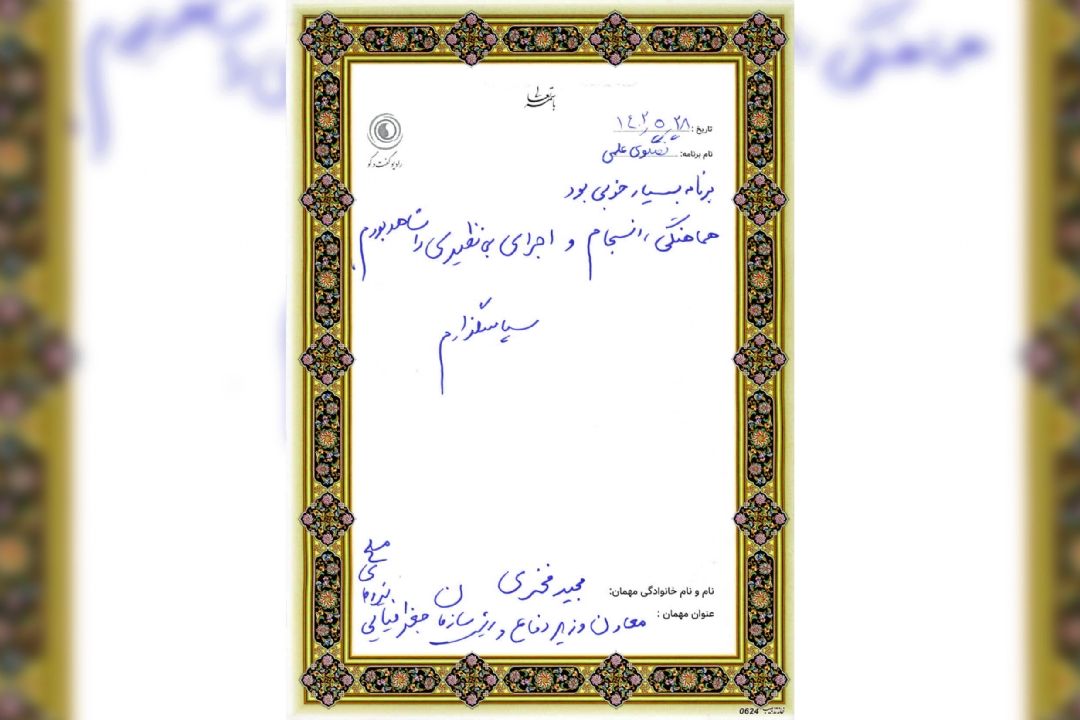 باسمه تعالی
تاریخ: ۱۴۰۲/۵/۲۸
نام برنامه: گفتگوی علمی
رادیو گفت و گو
برنامه بسیار خوبی بود
هماهنگی، انسجام و اجرای بی نظیری را شاهد بودم.
سپاسگذارم
نام و نام خانوادگی مهمان: مجید فخری
عنوان مهمان: معاون وزیر دفاع و رئیس سازمان جغرافیایی نیروهای مسلح
0624